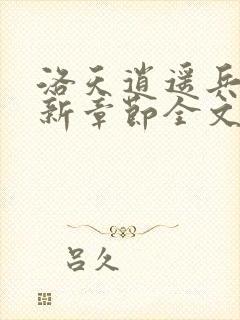 洛天逍遥兵
新章节全文
吕久